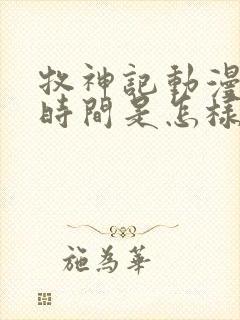 牧神記動漫
時間是怎樣
施為華